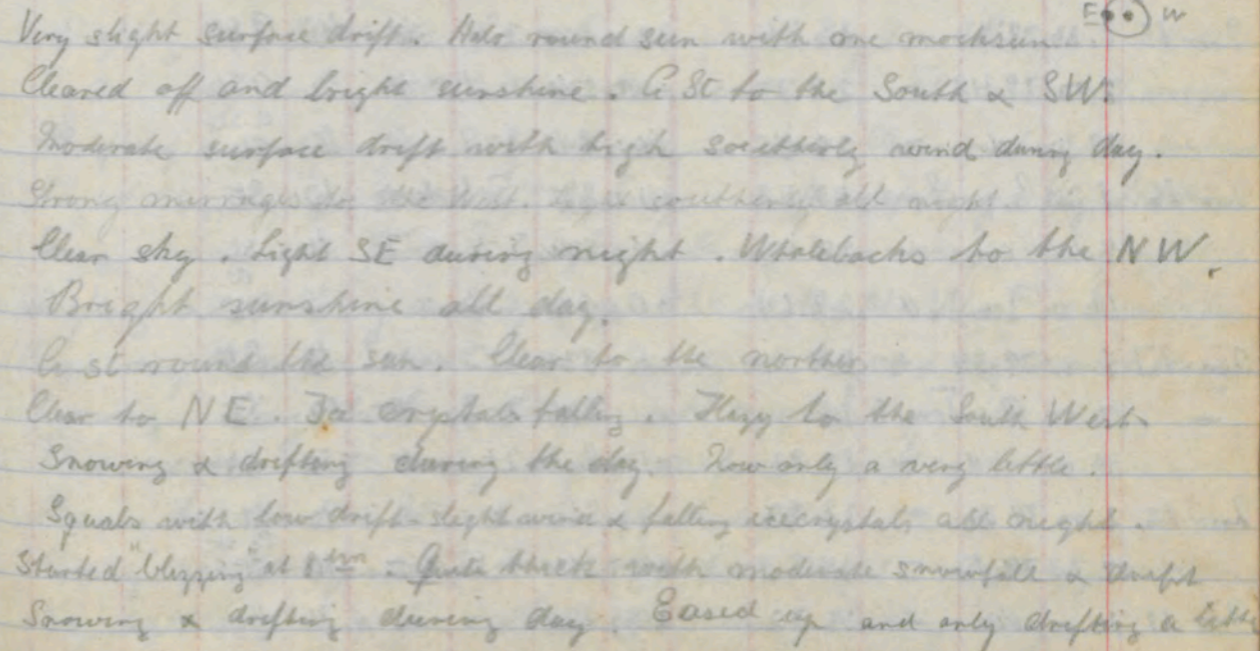 E W
Very slight surface drift. Halo round sun with one mocksun.
Cleared off and bright sunshine. C St to the South & SW.
Moderate surface drift with high southerly wind during day.
Strong mirages to the West. Light southerly all night.
Clear sky. Light SE during night. Whalebacks to the NW.
Bright sunshine all day.
C St round the sun. Clear to the
Clear to NE. Ice crystals falling. Hazy to the South West
Snowing & drifting during the day. Now only a very little.
Squals with low drift. slight wind & falling icecrystals all night.
Started "blizzing" at Quite thick with moderate snowfall & drift
Snowing & drifting during day. Eased up and only drifting a little